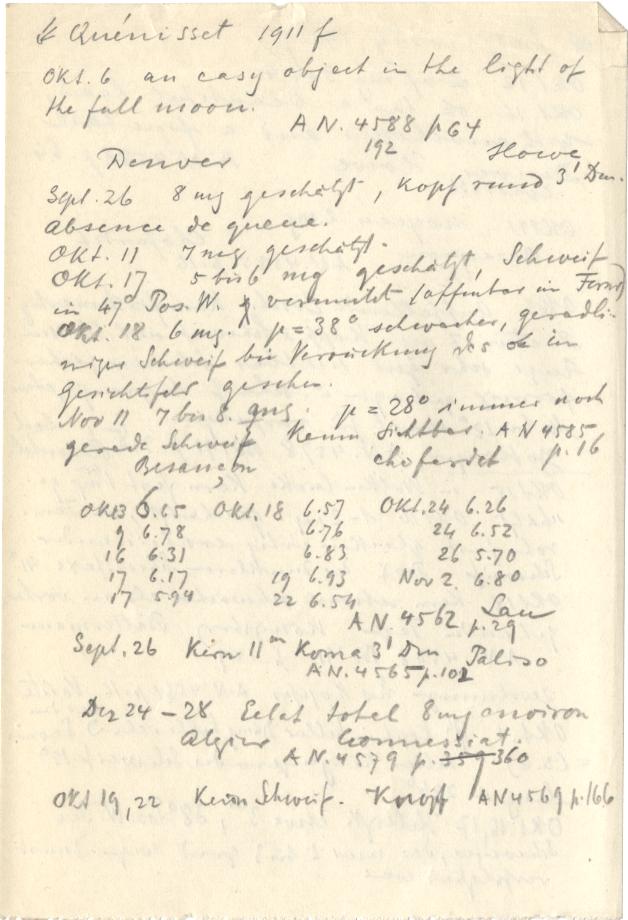 Quénisset 1911 f
Okt. 6 an easy object in the light of
the full moon.
AN. 4588 p 64
192
Denver Howe
Sept. 26 8 mg geschätzt, Kopf rund 3' Dm.
absence de queue.
Okt. 11 7 mg geschätzt.
Okt. 17 5 bis 6 mg geschätzt, Schweif
in 47° Pos. W. vermutet (offenbar im
Okt. 18 6 mg. p = 38° schwacher, geradli-
niger Schweif bei Verrückung des im
Gesichtsfeld gesehen.
Nov 11 7 bis 8. mg. p = 28° immer noch
gerade Schweif Kaum Sichtbar. AN 4585
p. 16
Besançon Chofardet
Okt 3 6.65 Okt. 18 6.57 Okt. 24 6.26
9 6.78 6.76 24 6.52
16 6.31 6.83 26 5.70
17 6.17 19 6.93 Nov 2 6.80
17 5.94 22 6.54
AN. 4562 p. 29 Lau
Sept. 26 Kern 11m Koma 3' Dm Paliso
AN. 4565 p. 102
Dez 24 – 28 Eclat total 8 mg environ
Algier Gonnessiat.
AN. 4579 p. 359 360
Okt 19, 22 Kein Schweif. AN 4569 p. 166